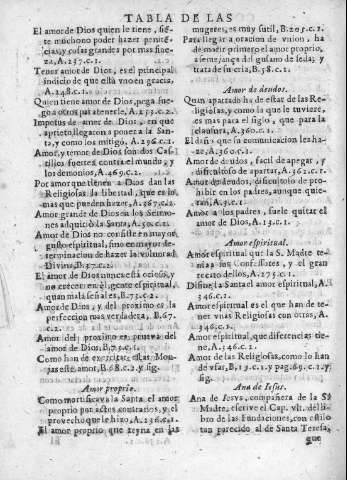 TABLA DE LAS
El amor de Dios quien le tiene, siẽ-
te mucho no poder hazer penitẽ-
cias, y cosas grandes por mas flue-
za, A.257.c.1.
Tener amor de Dios, es el principal
indicio de que està vno en gracia,
A.248.c.1.
Quien tiene amor de Dios, pega fue-
go a otros para tenerle, A.255.c.2.
Impetus de amor de Dios, en que
aprieto llegaron a poner a la San-
ta, y como los mitigò, A.296.c.1.
Amor, y temor de Dios son dos Ca-
stillos fuertes contra el mundo, y
los demonios, A.469.c.2.
Por amor que tienen a Dios dan las
Religiosas la libertad, que es lo
mas que pueden hazer, A.567.c.2.
Amor grande de Dios en los Sermo-
nes adquiriò la Santa, A.50.c.1.
Amor de Dios no consiste en mayor
gusto espiritual, sino en mayor de-
terminacion de hazer la volũtad
Divina, B.37.c.2.
El amor de Dios nunca està ocioso, y
no crecer en èl, gente espiritual,
quan mala señal es, B.73.c.2.
Amor de Dios, y del proximo es la
perfeccion mas verdadera, B.67.
c.2.
Amor del proximo es prueva del
amor de Dios, B.75.c.1.
Como han de exercitar estas Mon-
jas este amor, B.68.c.2. y sig.
Amor proprio.
Como mortificava la Santa el amor
proprio por actos contrarios, y el
provecho que le hizo, A.236.c.1.
El amor proprio que reyna en las
mugeres, es muy sutil, B.205.c.1.
Para llegar a oracion de vnion, ha
de morir primero el amor proprio,
a semejança del gusano de seda; y
trata de su cria, B.58.c.1.
Amor de deudos.
Quan apartado ha de estar de las Re-
ligiosas, y quando la que le tuviere,
es mas para el siglo, que para la
clausura, A.360.c.1.
El daño que su comunicacion les ha-
ze, A.360.c.1.
Amor de deudos, facil de apegar, y
dificultoso de apartar, A.362.c.1.
Amor de deudos, dificultoso de pro-
hibir en los padres, aunque quie-
ran, A.3.c.1.
Amor a los padres, suele quitar el
amor de Dios, A.13.c.1.
Amor espiritual.
Amor espiritual que la S. Madre te-
nia a sus Confessores, y el gran
recato dellos, A.275.c.1.
Difine la Santa el amor espiritual, A.
346.c.1.
Amor espiritual es el que han de te-
ner vnas Religiosas con otras, A.
346.c.1.
Amor espiritual, que diferencias tie-
ne, A.346.c.1.
Amor de las Religiosas, como lo han
de vsar, B.13.c.1. y pag.69.c.2. y
sig.
Ana de Iesus.
Ana de Iesvs, compañera de la Sã
Madre, escrive el Cap. vlt. del li-
bro de las Fundaciones, con estilo
tan parecido al de Santa Teresa,
que